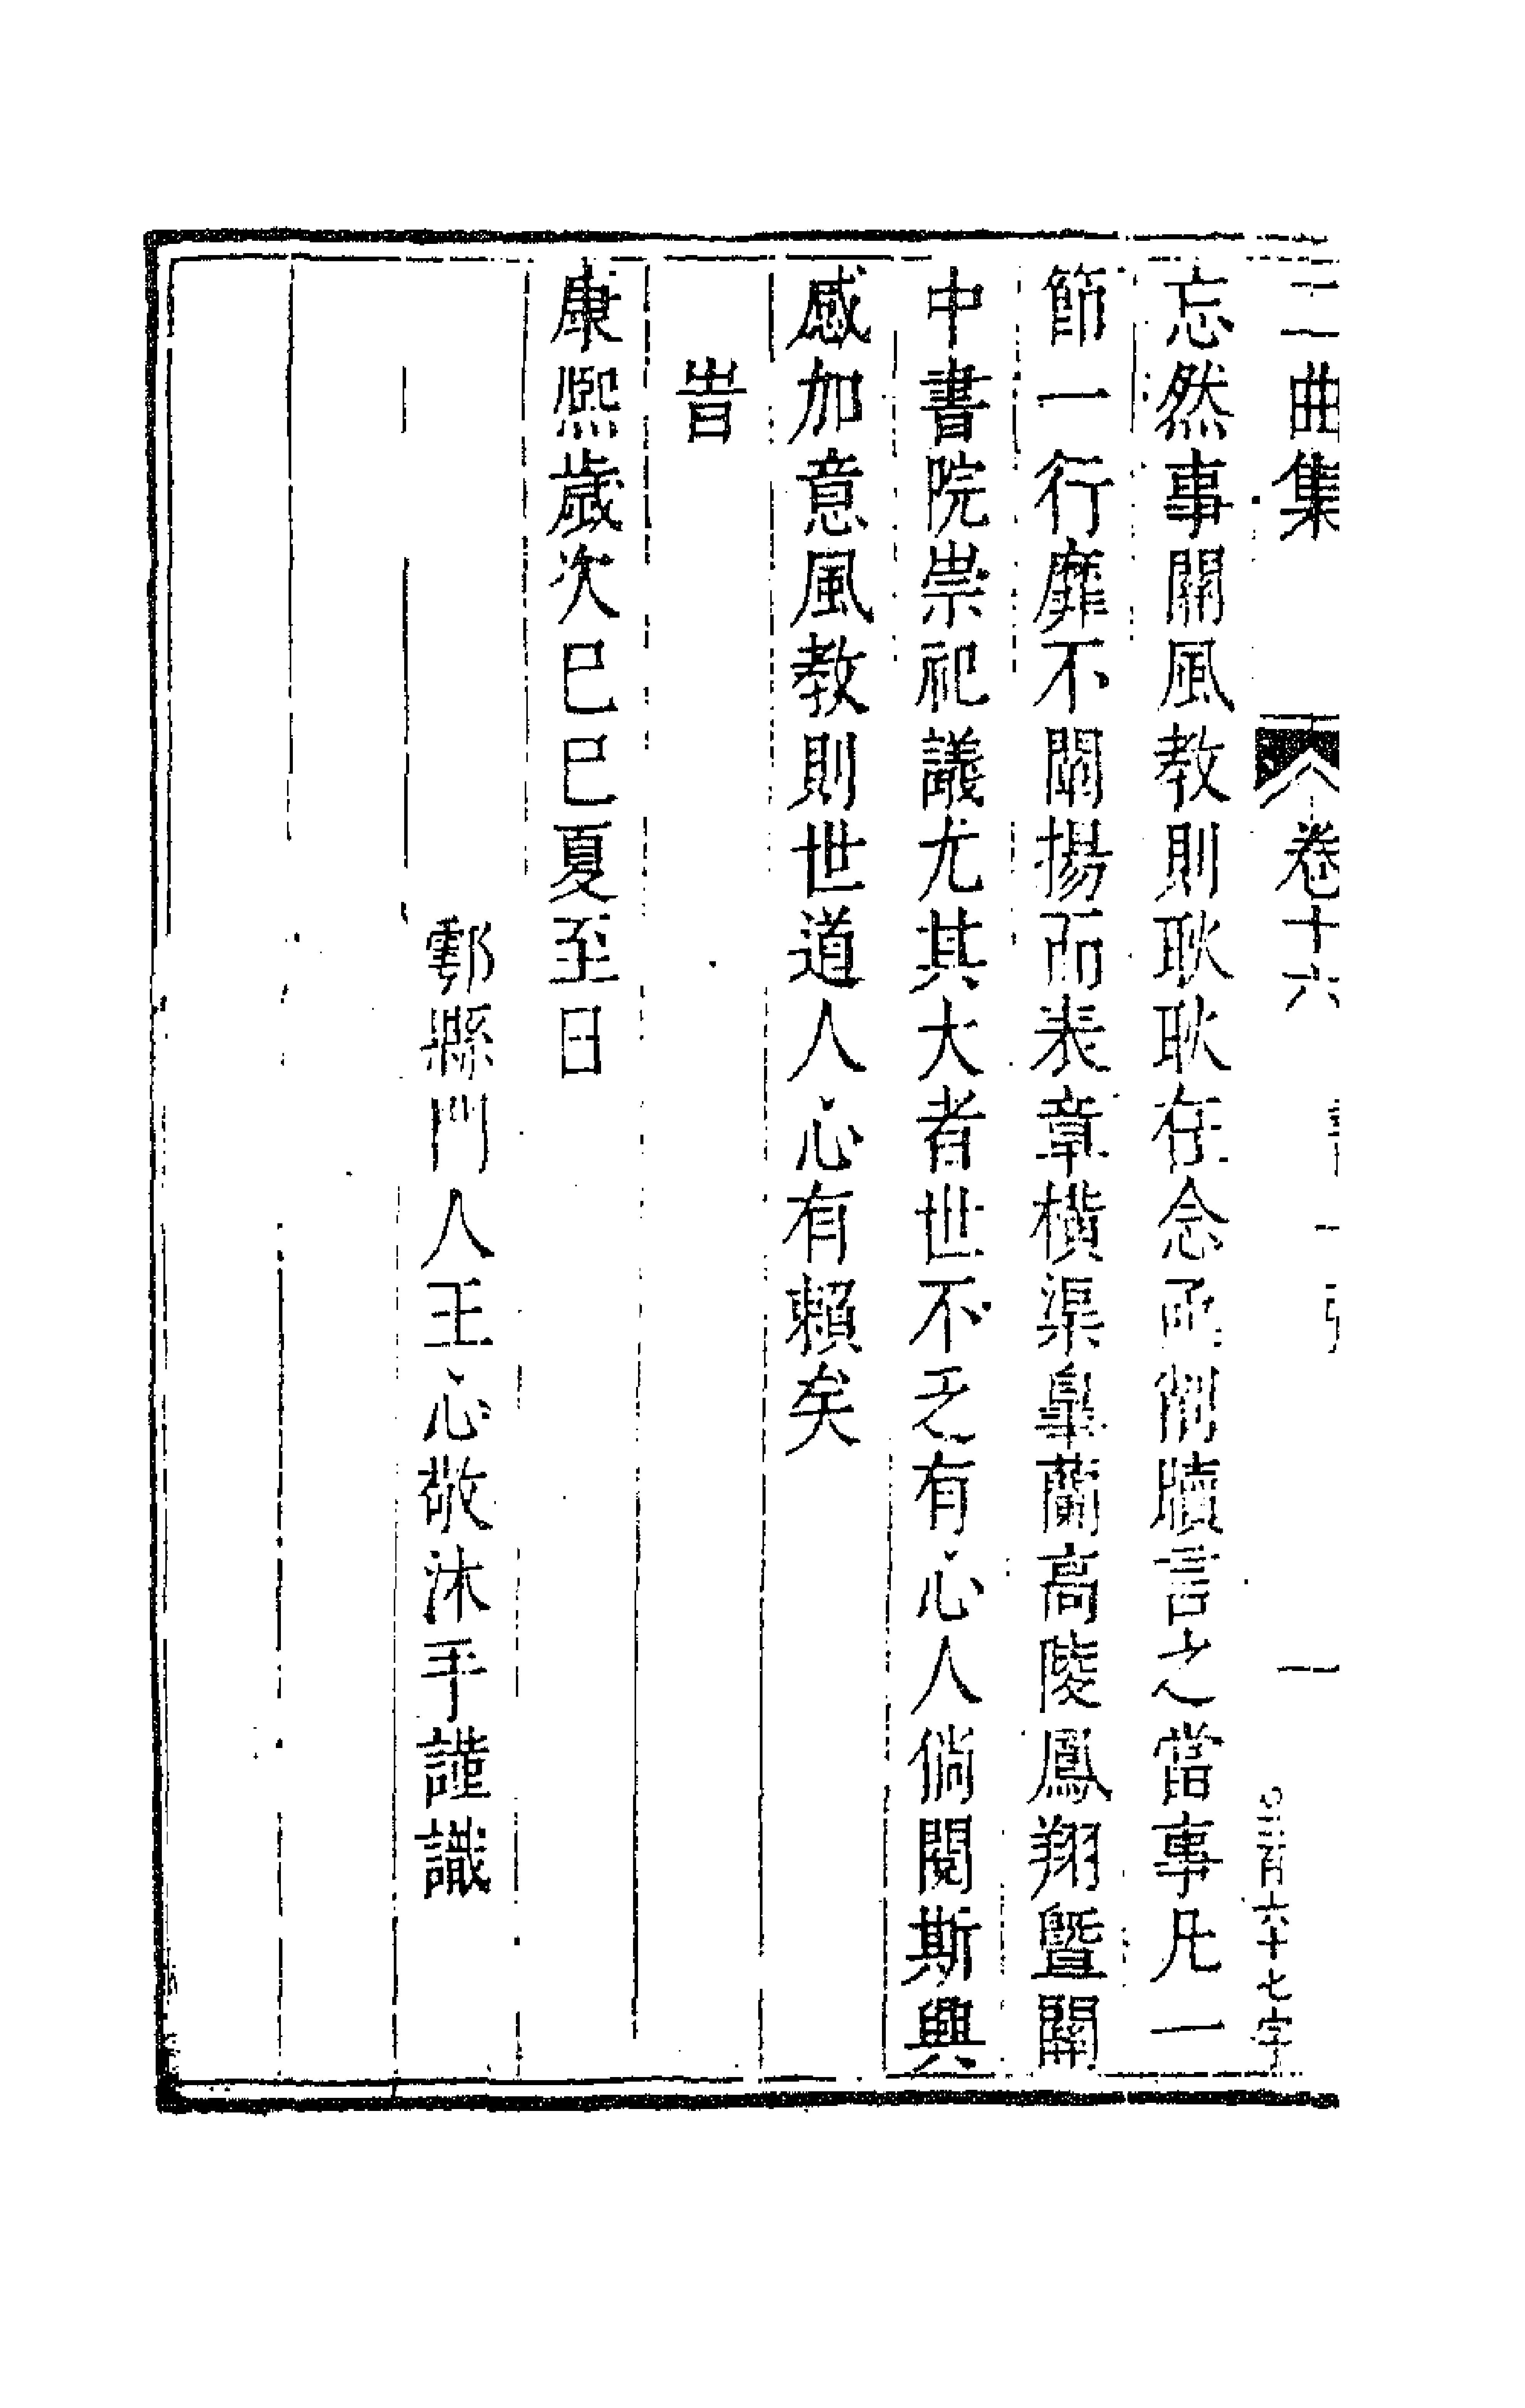 二曲集 卷十六 一 三百六十七字
忘然事關風教則耿耿在念函削牘言之當事凡一
節一行靡不闡揚而表章橫渠臯蘭高陵鳳翔曁關
中書院崇祀議尤其大者世不乏有心人倘閱斯興
感加意風教則世道人心有賴矣
旹
康熙歲次己巳夏至日
鄠縣門人王心敬沐手謹識